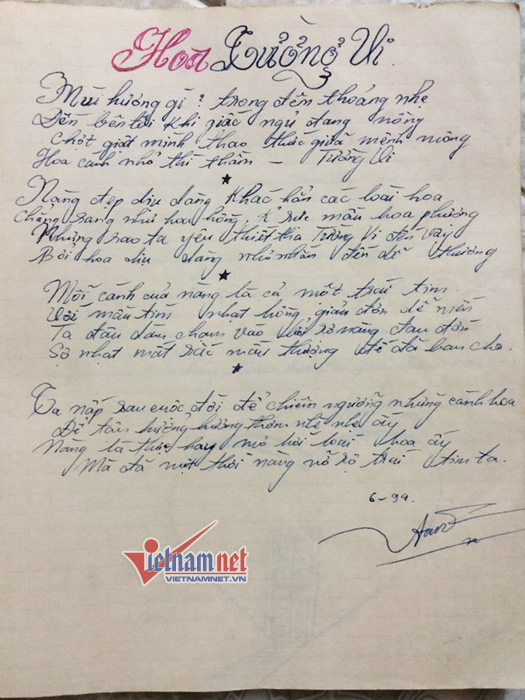 Hoa Tường Vi
Mùi hương gì? trong đêm thoáng nhẹ
Đến bên tôi khi giấc ngủ đang nồng
Chợt giật mình thao thức giữa mênh mông
Hoa cánh nhỏ thì thầm - Tường Vi
Nàng đẹp dịu dàng khác hẳn các loài hoa
Chẳng sang như hoa hồng, k rực màu hoa phượng
Nhưng sao ta yêu thiết tha Tường Vi đến vậy
Bởi hoa dịu dàng nhỏ nhắn đến dễ thương
Mỗi cánh của nàng là cả một trái tim
Với màu tím nhạt hồng, giản đơn dễ mến
Ta đâu dám chạm vào vì sợ nàng đau đớn
Sợ nhạt mất sắc màu thượng đế đã ban cho
Ta nấp sau cuộc đời để chiêm ngưỡng những cánh hoa
Để tận hưởng hương thơm nhè nhẹ ấy
Nàng là thực hay mơ hỡi loài hoa ấy
Mà đã một thời nàng nở rộ trái tim ta.
6-99.
Vietnamnet
VIETNAMNET.VN